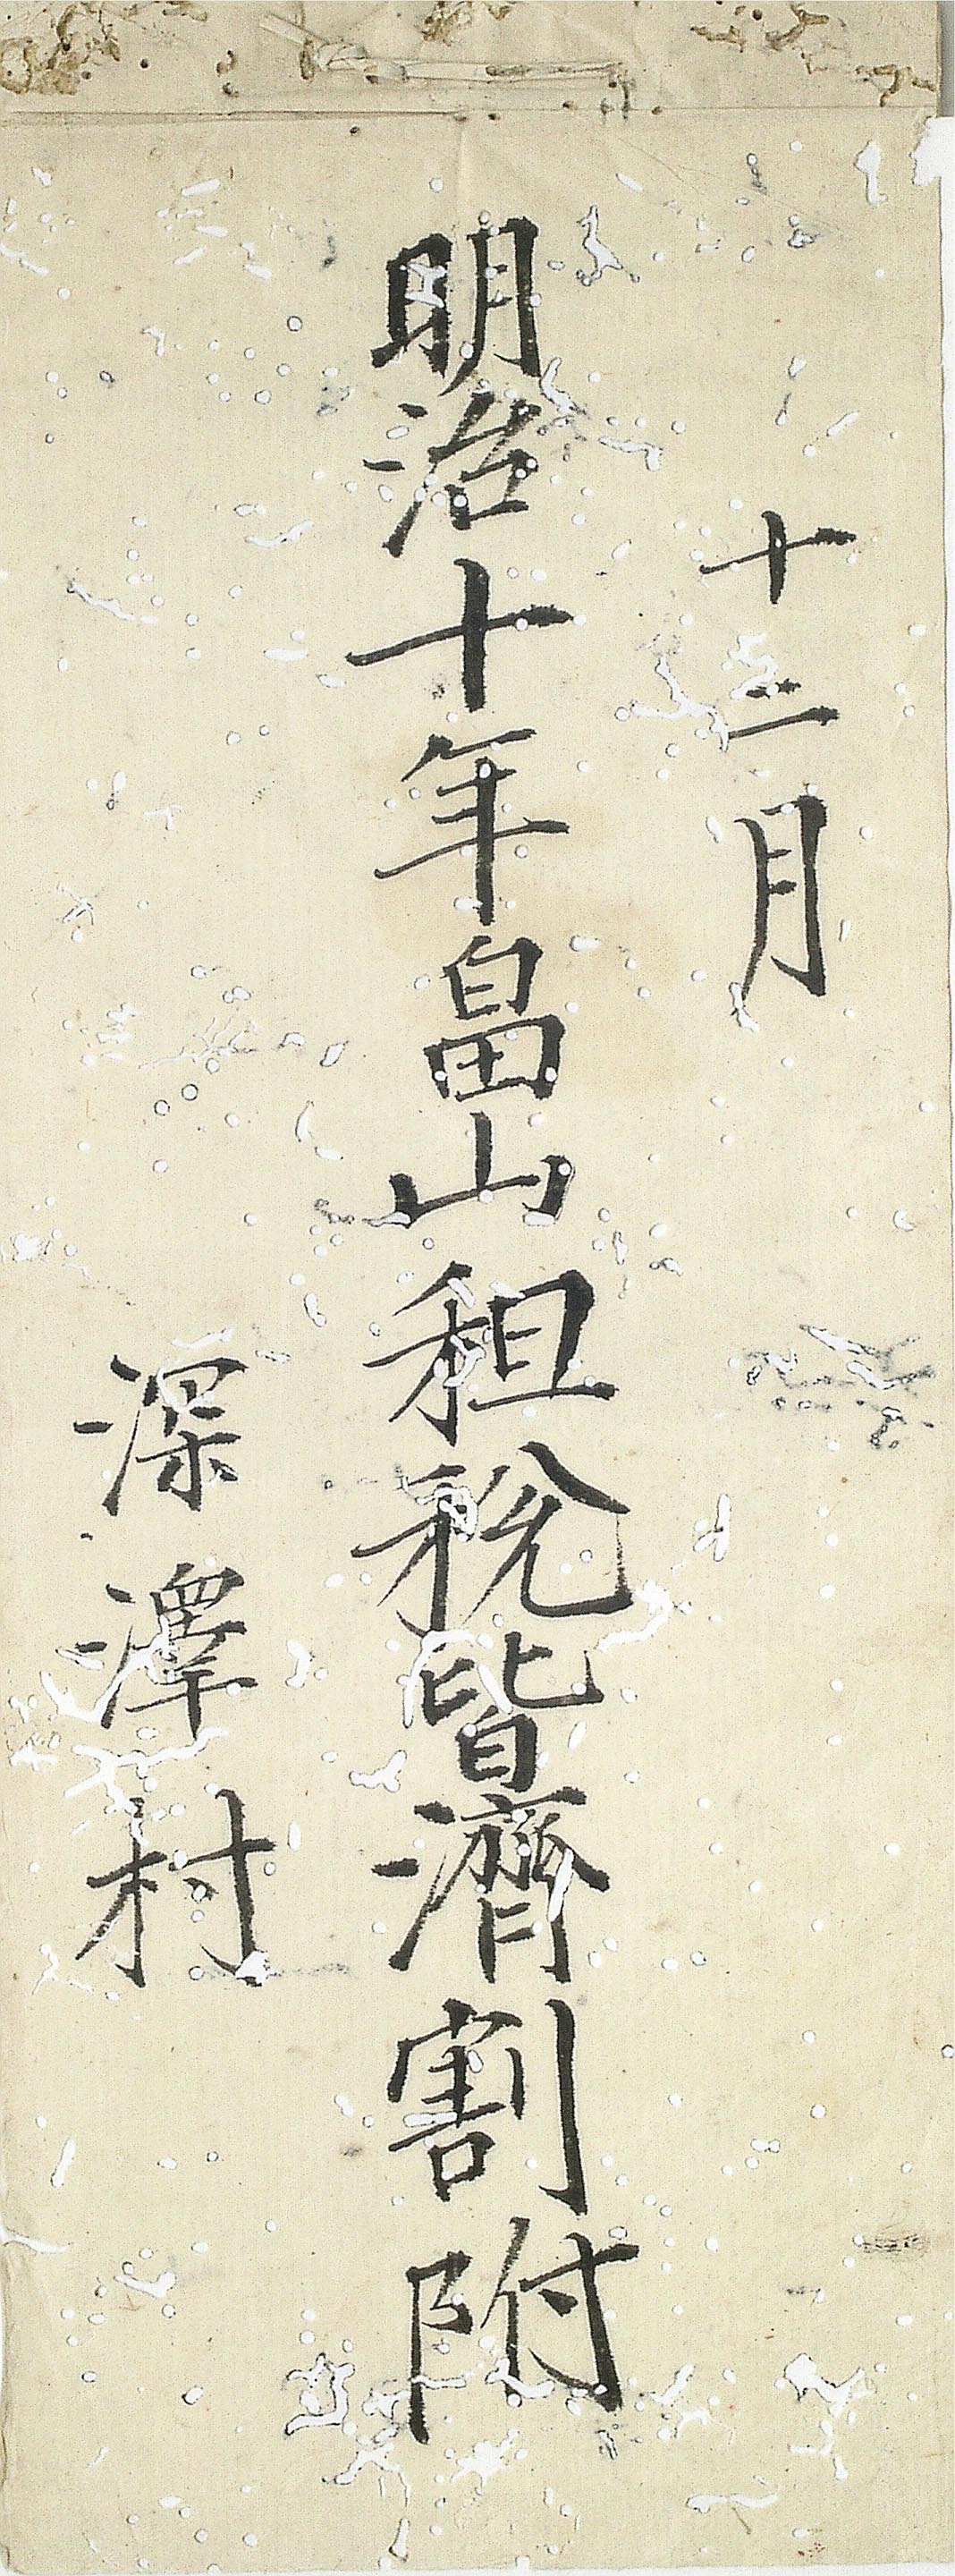 十二月
明治十年畠山租税皆済割附
深澤村